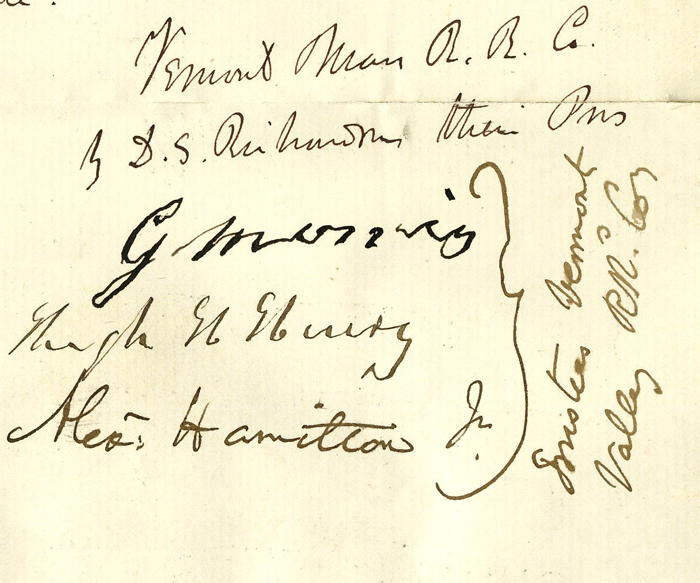 Vermont Mass R. R. Co.
by D. S. Richardson their Pres
G
Hugh H Henry
Alexr. Hamilton Jr.
Trustees Vermont
Valley RR. Coy